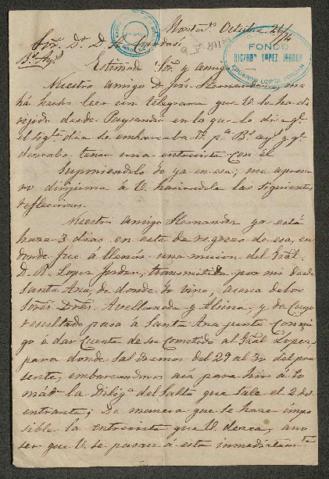 Montevo. Octubre 24/74
FONDO
RICARDO LOPEZ JORDAN
Sor. Dr. D.
Bs. Ays.
Estimado Sor. y amigo
Nuestro amigo Dn. José Hernandez, me
ha hecho leer un telegrama que U. le ha di-
rijido desde Paysandú en la que le dice qe.
el sigte. dia se embarcaba U. pa. Bs. Ays. y qe.
deseaba tener una entrevista con el
Suponiendolo ya en esa; me apresu-
ro dirijirme á U. haciendole las siguientes
reflecciones.
Nuestro amigo Hernandez ya está
hace 3 dias en esta de regreso de esa, en
donde fue á llenar una mision del Gral.
D. R. Lopez Jordan, transmitida por mi desde
Santa Ana, de donde vino, acerca de los
Sores. Dres. Avellaneda y Alsina; y de cuyo
resultado pasa á Santa Ana junto conmi-
go á dar cuenta de su cometido al Gral. Lopez
para donde saldremos del 29 al 30 del pre-
sente, embarcandonos acá para hir á to-
mar la Dilija. del Salto que sale el 2 del
entrante; de manera que se hace impo-
sible la entrevista que U. desea, á no
ser que U. se pasase á esta inmediatamte.